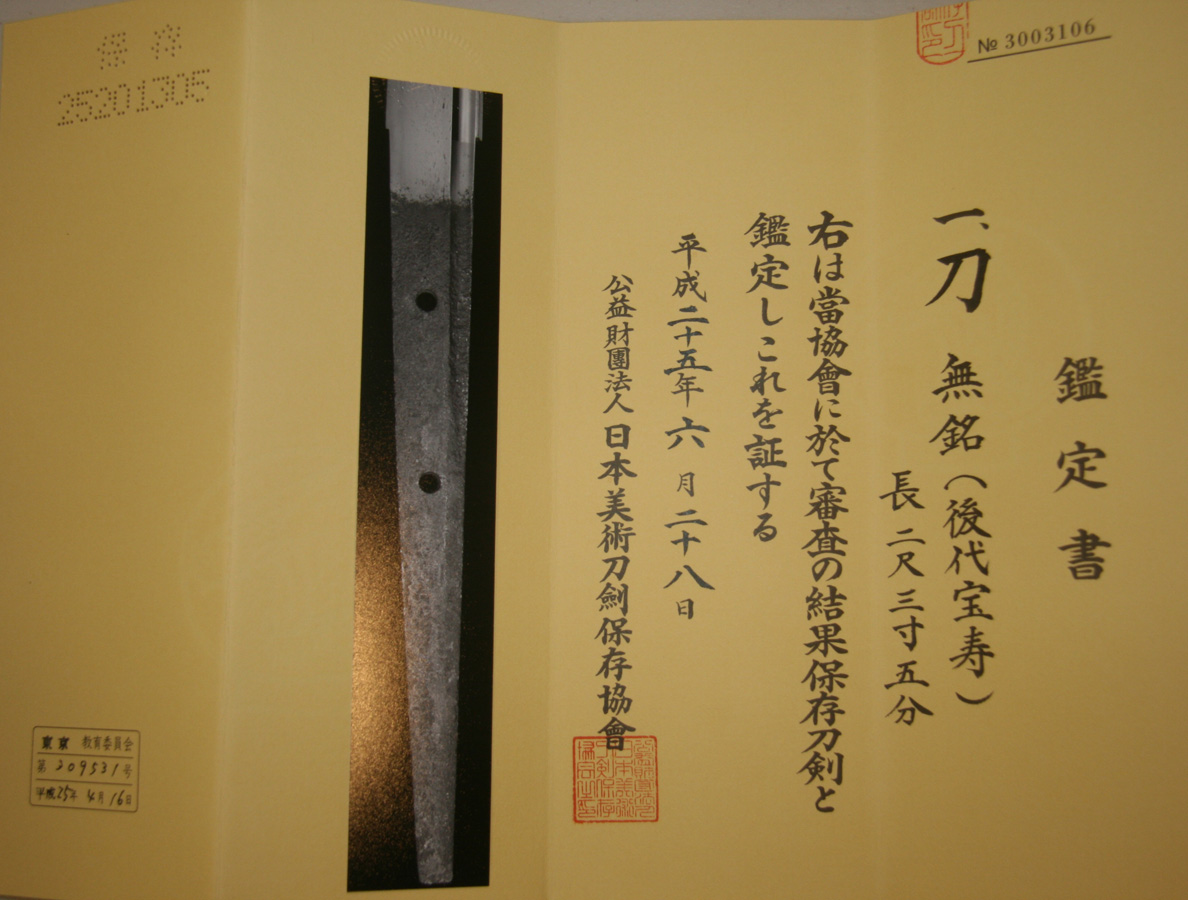 № 3003106
鑑定書
一、刀 無銘（後代宝寿）
長 二尺三寸五分
右は當協會に於て審査の結果保存刀剣と
鑑定しこれを証する
平成二十五年六月二十八日
公益財團法人 日本美術刀劍保存協會
25201305
東京 教育委員会
第 209531 号
平成25年 4月 16日